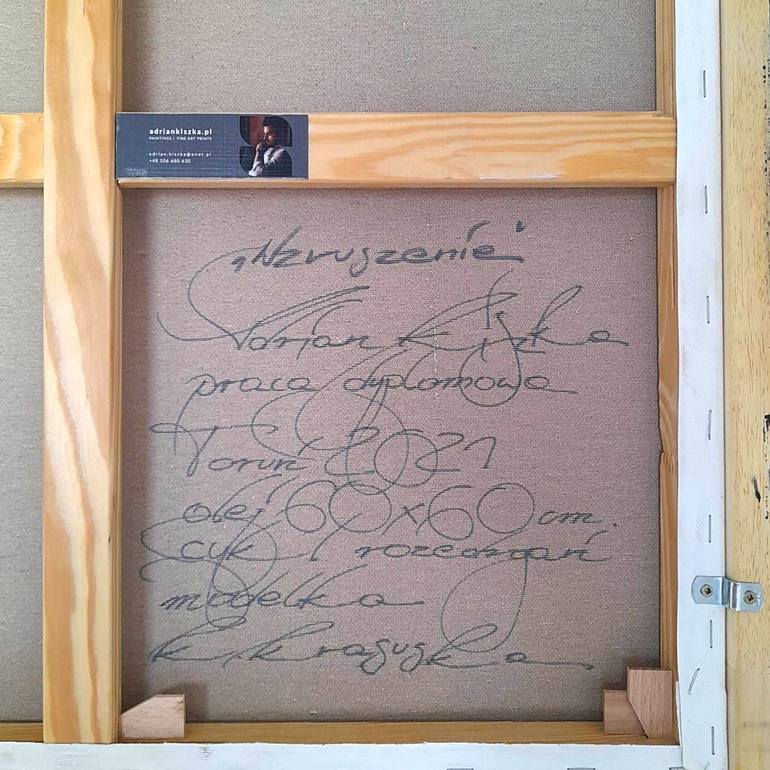 adriankiszka.pl
PAINTINGS | FINE ART PRINTS
adrian.kiszka@onet.pl
+48 506 680 630
„Wzruszenie"
Adrian Kiszka
praca dyplomowa
Toruń 2021
olej 60x60 cm.
cykl rozedrgań
modelka
K.